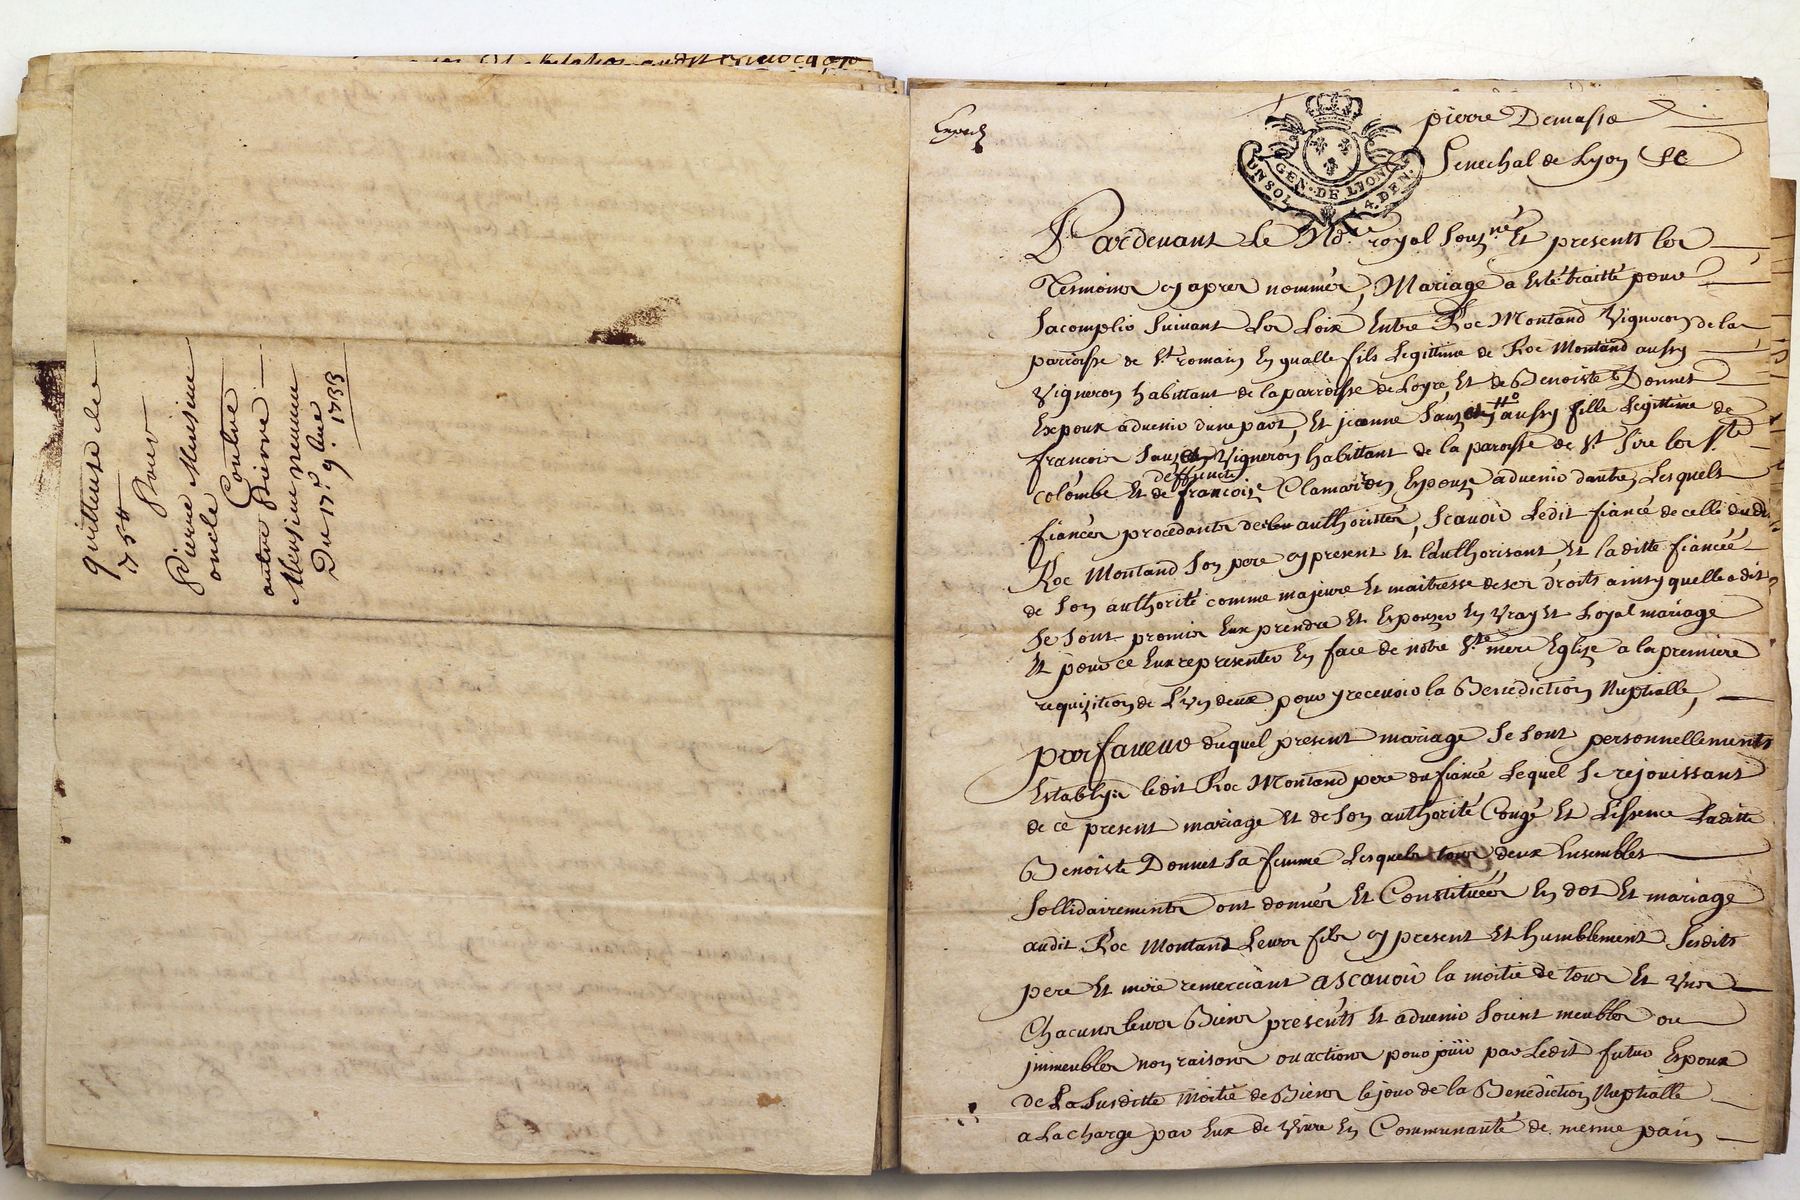 quittance de
1754
Pour
Pierre Mersime
oncle
Contre
autre Pierre
Mersime nemeu
Du 17.e 9.bre 1733
Exped
pierre Demasso
Senechal de Lyon &c
GEN. DE LYON
UN SOL 4. DEN.
Pardevant Le No.re royal Souz.né Et presents les
Tesmoins cy apres nommés, Mariage a Esté traitté pour
Sacomplir Suivant Les Loix Entre Roc Montand Vigneron de la
parroisse de St. romain En qualle fils Legittime de Roc Montand aussy
Vigneron habittant de la parroisse de Loyre, Et de Benoiste Donnet
Expoux advenir dune part, Et jeanne aussy fille Legittime de
francois Vigneron habittant de la paroisse de St Sire les Ste
colombe Et de deffuncte francoise Clamaron Expouze advenir dautre, Lesquels
fiancés procedants de authorittés, Scavoir Ledit fiancé de celle dudt
Roc Montand Son pere cy present Et Lauthorisant, Et laditte fiancée
de Son authorité comme majeure Et maitresse deses droits ainsy quelle a dit
Se Sont promis Eux prendre Et Expouzer En Vray Et Loyal mariage
Et pour ce Eux representer En face de notre Ste mere Eglize a la premiere
requizition de L'un deux pour y recevoir la Benediction Nuptialle,
par faveur duquel present mariage Se Sont personnellements
Establys ledit Roc Montand pere du fiancé Lequel Se rejouissant
de ce present mariage Et de Son authorité Congé Et Lissence Laditte
Benoiste Donnet Sa femme Lesquels tous deux Ensembles
Sollidairements ont donnés Et Constituées En dot Et mariage
audit Roc Montand Leurs fils cy present Et humblement Sesdits
pere Et mere remerciant ascavoir la moitie de tous Et Uns
Chacuns leurs Biens presents Et advenir Soient meubles ou
jmmeubles noms raisons ou actions pour jouir par Ledit futur Expoux
de La Susditte Moitie de Biens le jour de la Benediction Nuptialle
a La charge par Eux de Vivre En Communauté de mesme pain